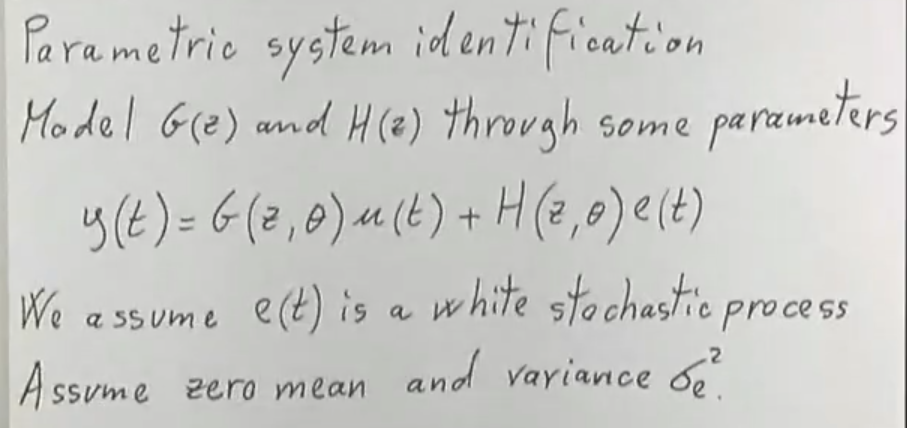 Parametric system identification
Model G(z) and H(z) through some parameters
y(t) = G(z, θ) u(t) + H(z, θ) e(t)
We assume e(t) is a white stochastic process
Assume zero mean and variance σₑ².